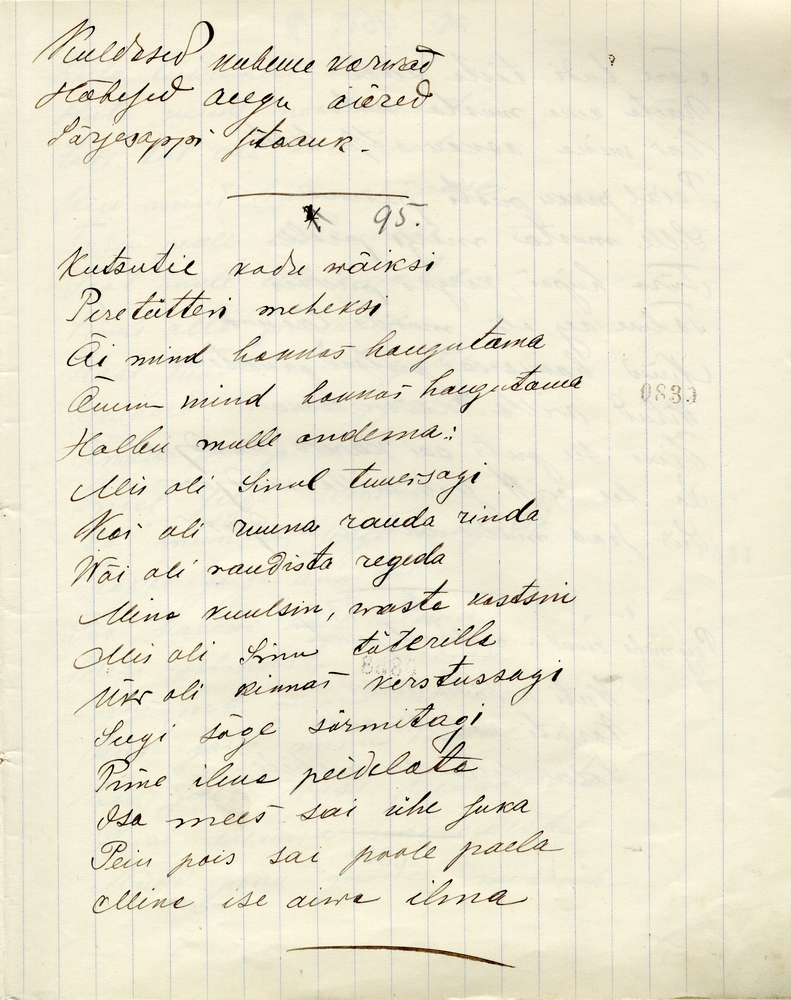 Kuldased kuheme karwad
Hõbesed aegu ääred
Särjesappi sitaauk.
95.
Kutsutie kodu wäiksi
Peretütteri meheksi
Äi mind hakkas haugutama
Ämm mind hakkas haugutama
Halbu mulle andema:
Mis oli Sinul tuuessagi
Kas oli ruuna rauda rinda
Wõi oli raudista regeda
Mina kuulsin, wasta kostsin
Mis oli Sinu tüterilla
Üks oli kinnas kerstussagi
Seegi sõge sõrmitagi
Pime ilma peidelata
Isa mees sai ühe suka
Peiu pois sai poole paela
Mina ise aiwa ilma
0830